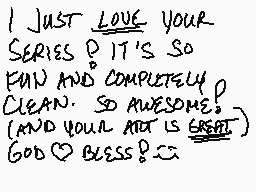 I JUST LOVE YOUR
SERIES! IT'S SO
FUN AND COMPLETELY
CLEAN. SO AWESOME!
(AND YOUR ART IS GREAT)
GOD ♡ BLESS! :)